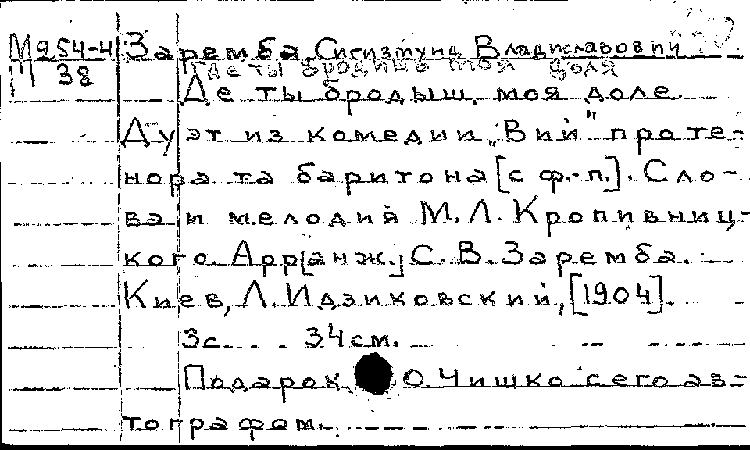 М954-4 Заремба, Сигизмунд Владиславович
П 38 Где ты бродишь моя доля
Де ты бродыш, моя доле.
Дуэт из комедии „Вий" про те-
нора та баритона [с ф.-п.]. Сло-
ва и мелодия М. Л. Кропивниц-
кого. Арр[анж.] С. В. Заремба.
Киев, Л. Идзиковский, [1904].
3с. 34см.
Подарок О. Чишко с его ав-
тографом.